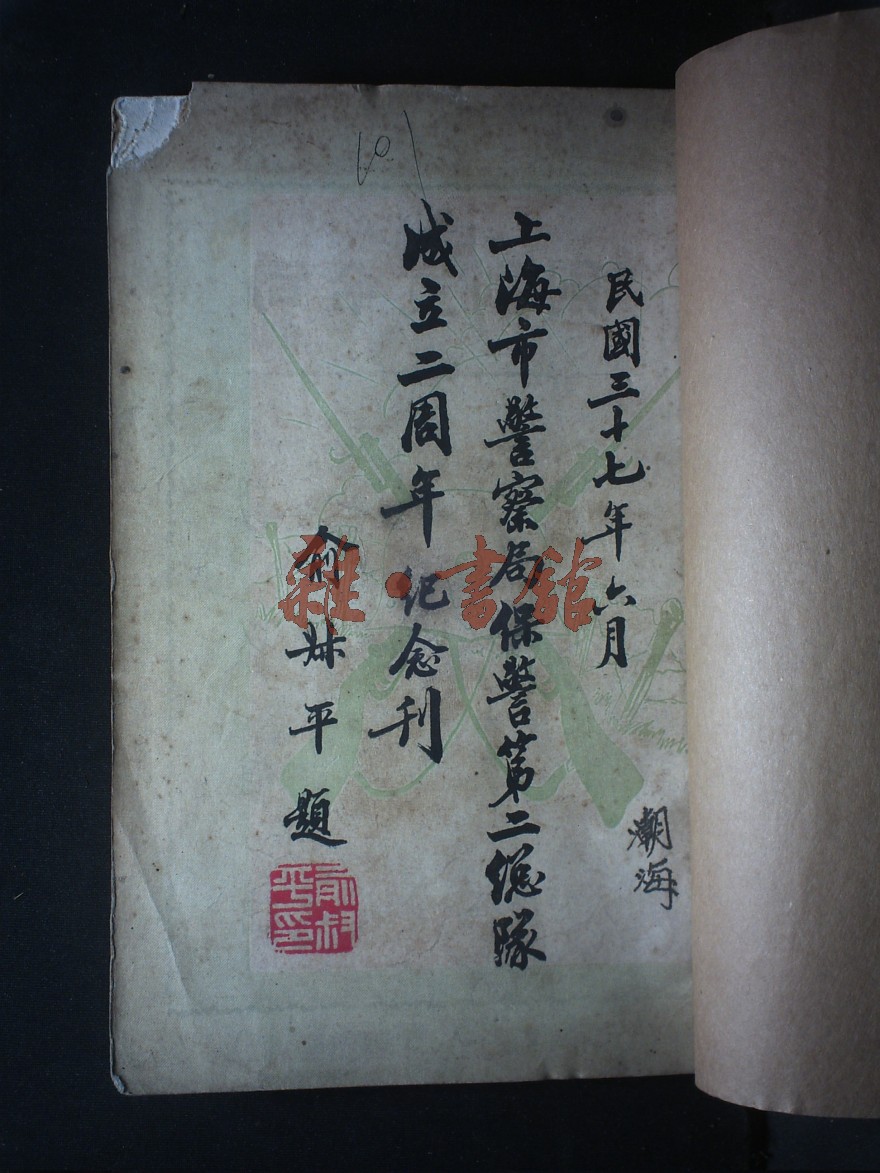 民國三十七年六月
上海市警察局保警第二總隊
成立二周年紀念刊
俞叔平題
俞叔平印
潮海
雜·書館